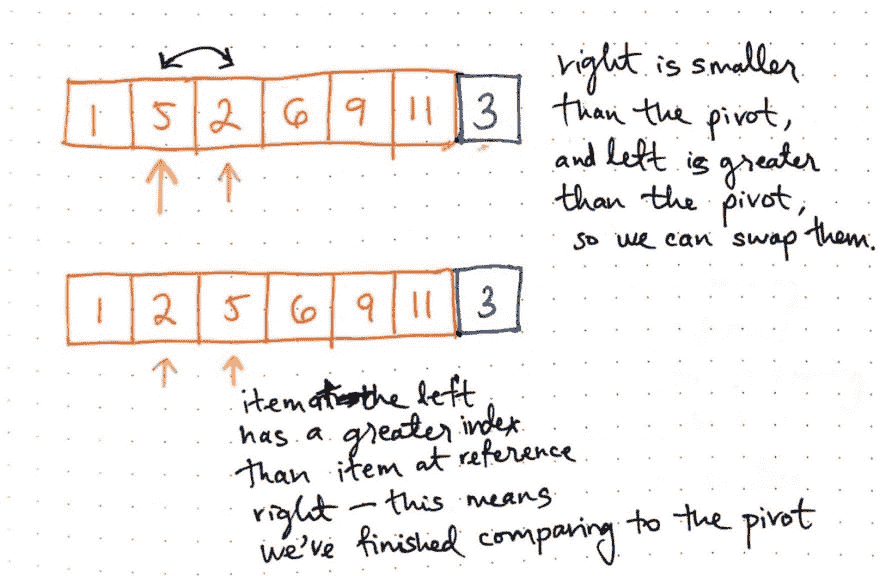 1 5 2 6 9 11 3
right is smaller
than the pivot,
and left is greater
than the pivot,
so we can swap them.
1 2 5 6 9 11 3
item at the left
has a greater index
than item at reference
right — this means
we've finished comparing to the pivot